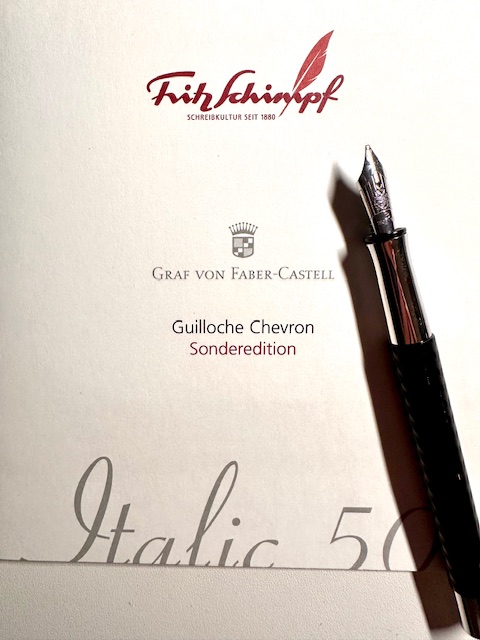 Fritz Schimpf
SCHREIBKULTUR SEIT 1880
GRAF VON FABER-CASTELL
Guilloche Chevron
Sonderedition
Italic 50